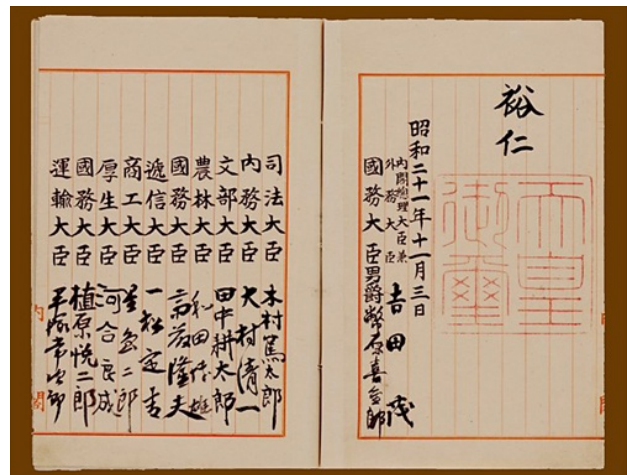 裕仁
天皇
御璽
昭和二十一年十一月三日
内閣総理大臣兼
外務大臣 吉田茂
國務大臣 男爵幣原喜重郎
司法大臣 木村篤太郎
内務大臣 大村清一
文部大臣 田中耕太郎
農林大臣 和田博雄
國務大臣 斎藤隆夫
遞信大臣 一松定吉
商工大臣 星島二郎
厚生大臣 河合良成
國務大臣 植原悦二郎
運輸大臣 平塚常次郎
内閣